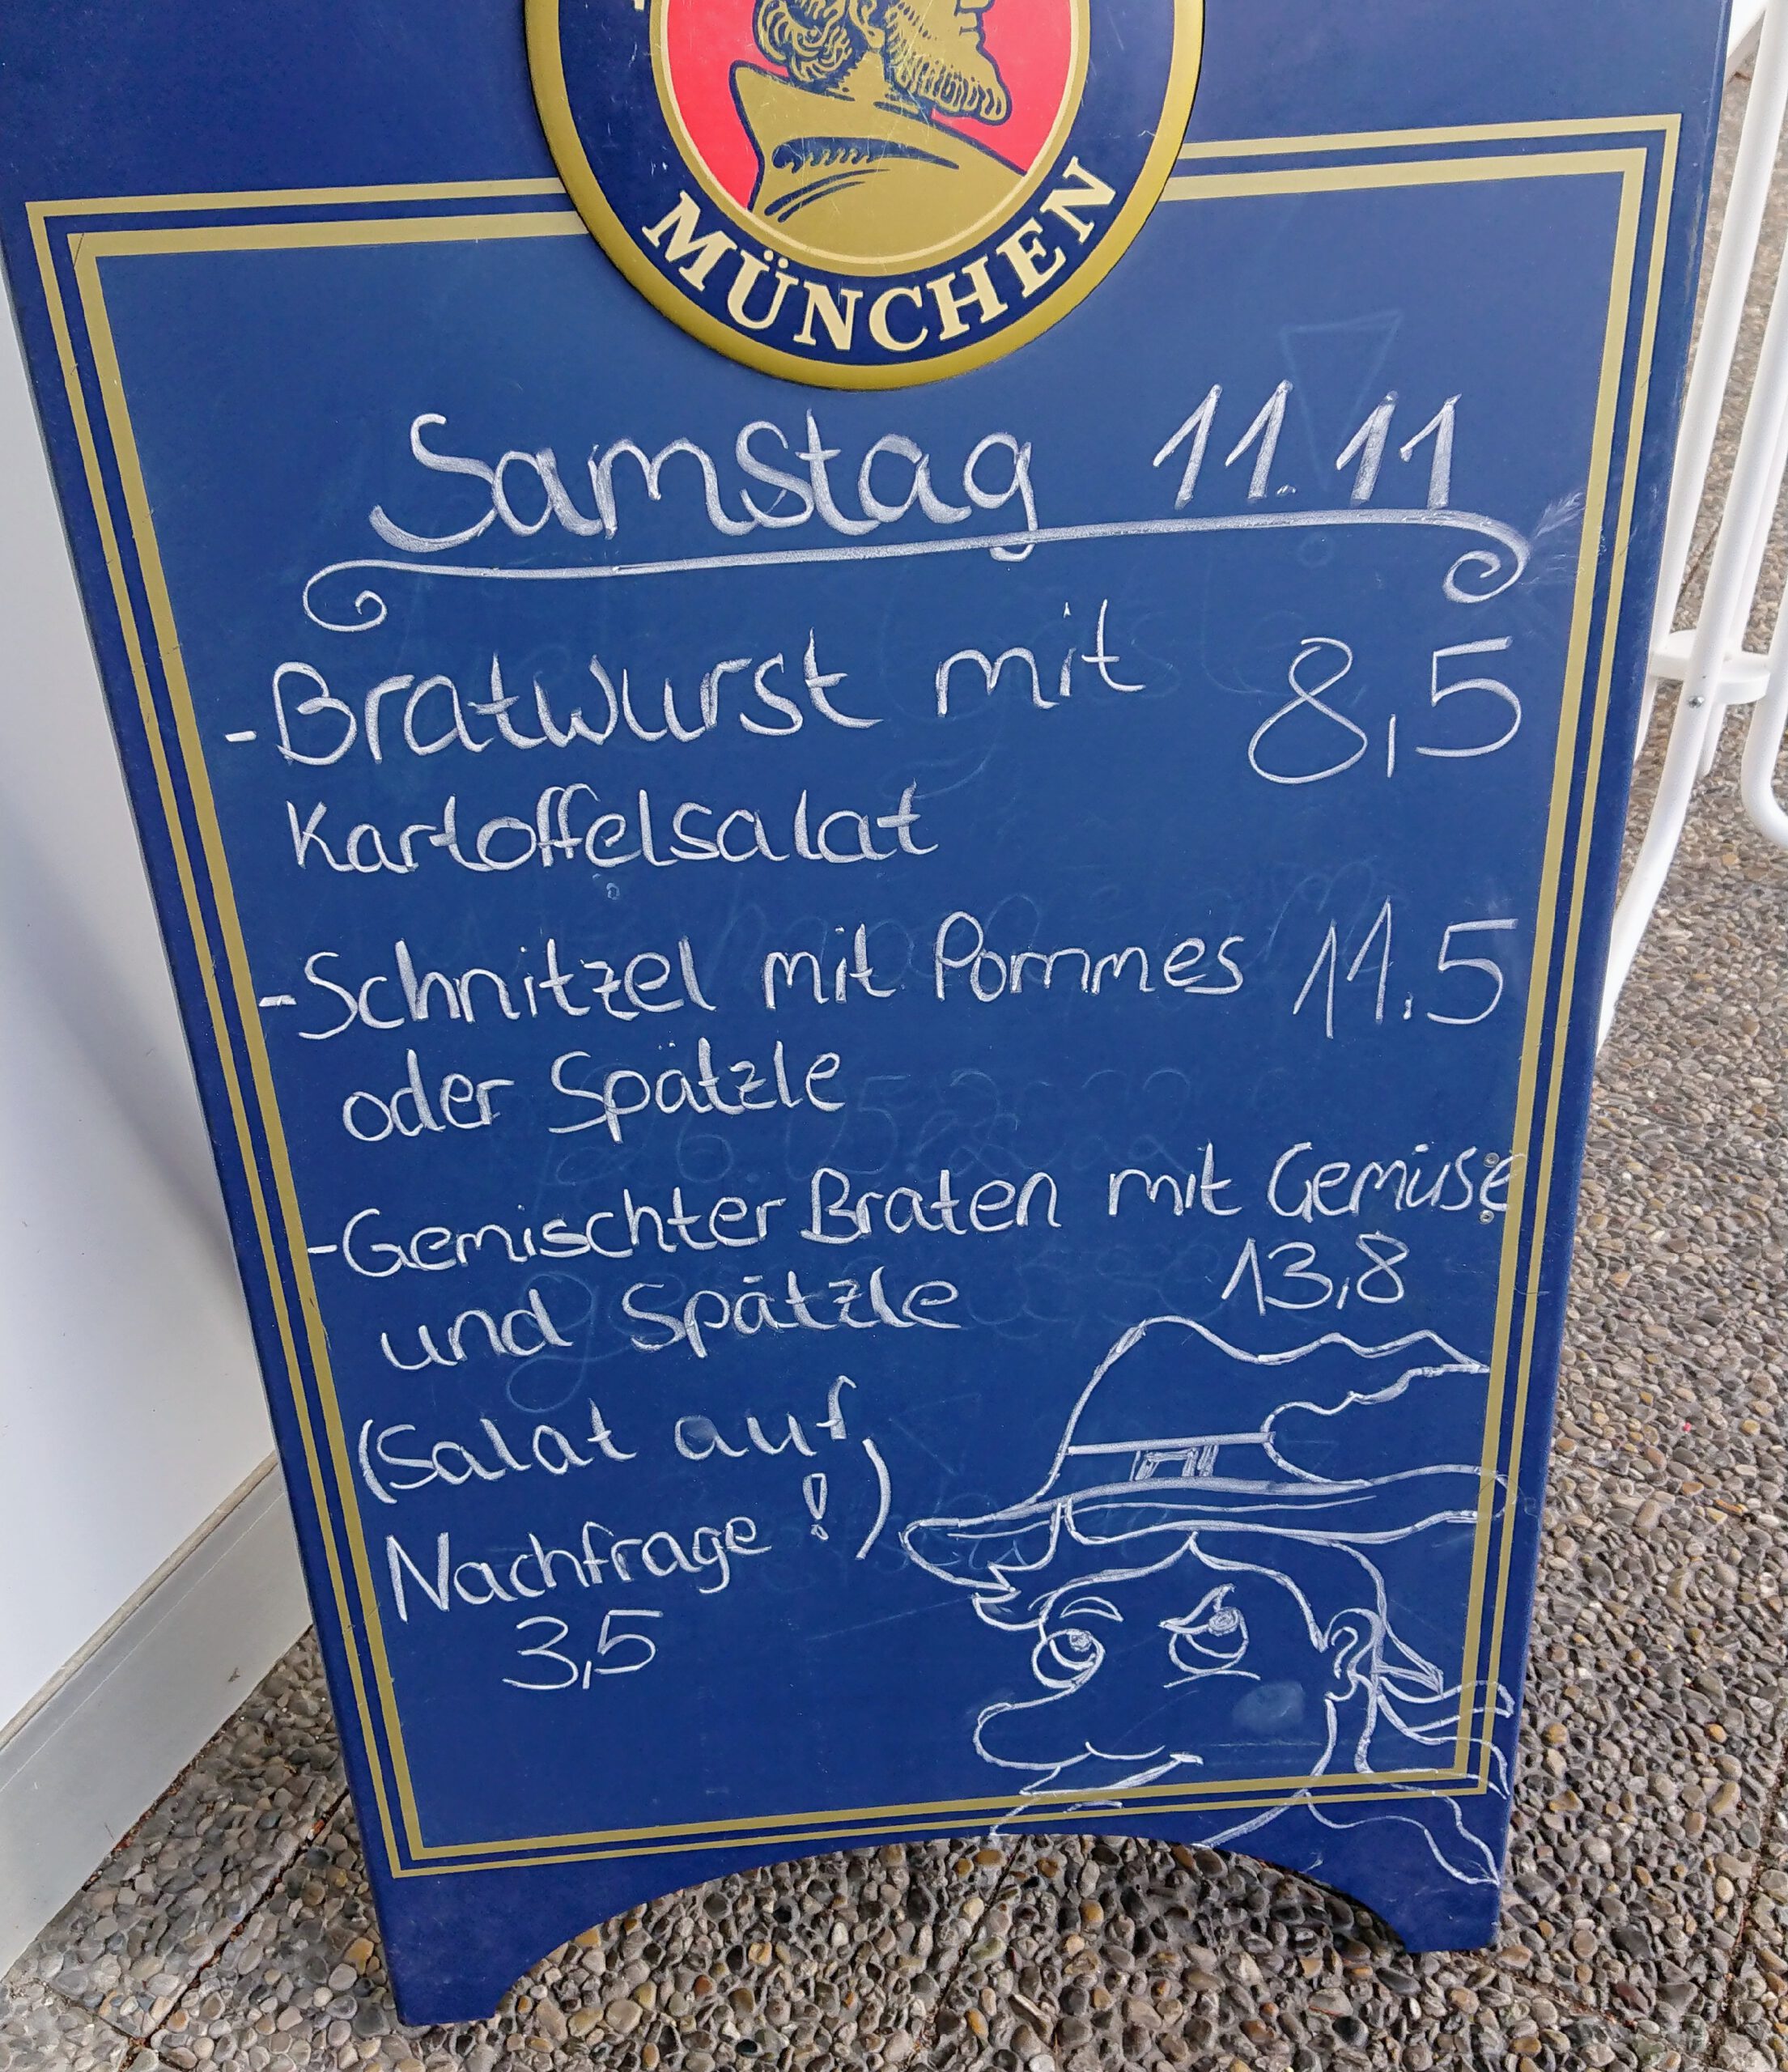 MÜNCHEN
Samstag 11.11
-Bratwurst mit 8,5
Kartoffelsalat
-Schnitzel mit Pommes 11.5
oder Spätzle
-Gemischter Braten mit Gemüse
und Spätzle 13,8
(Salat auf
Nachfrage!)
3,5